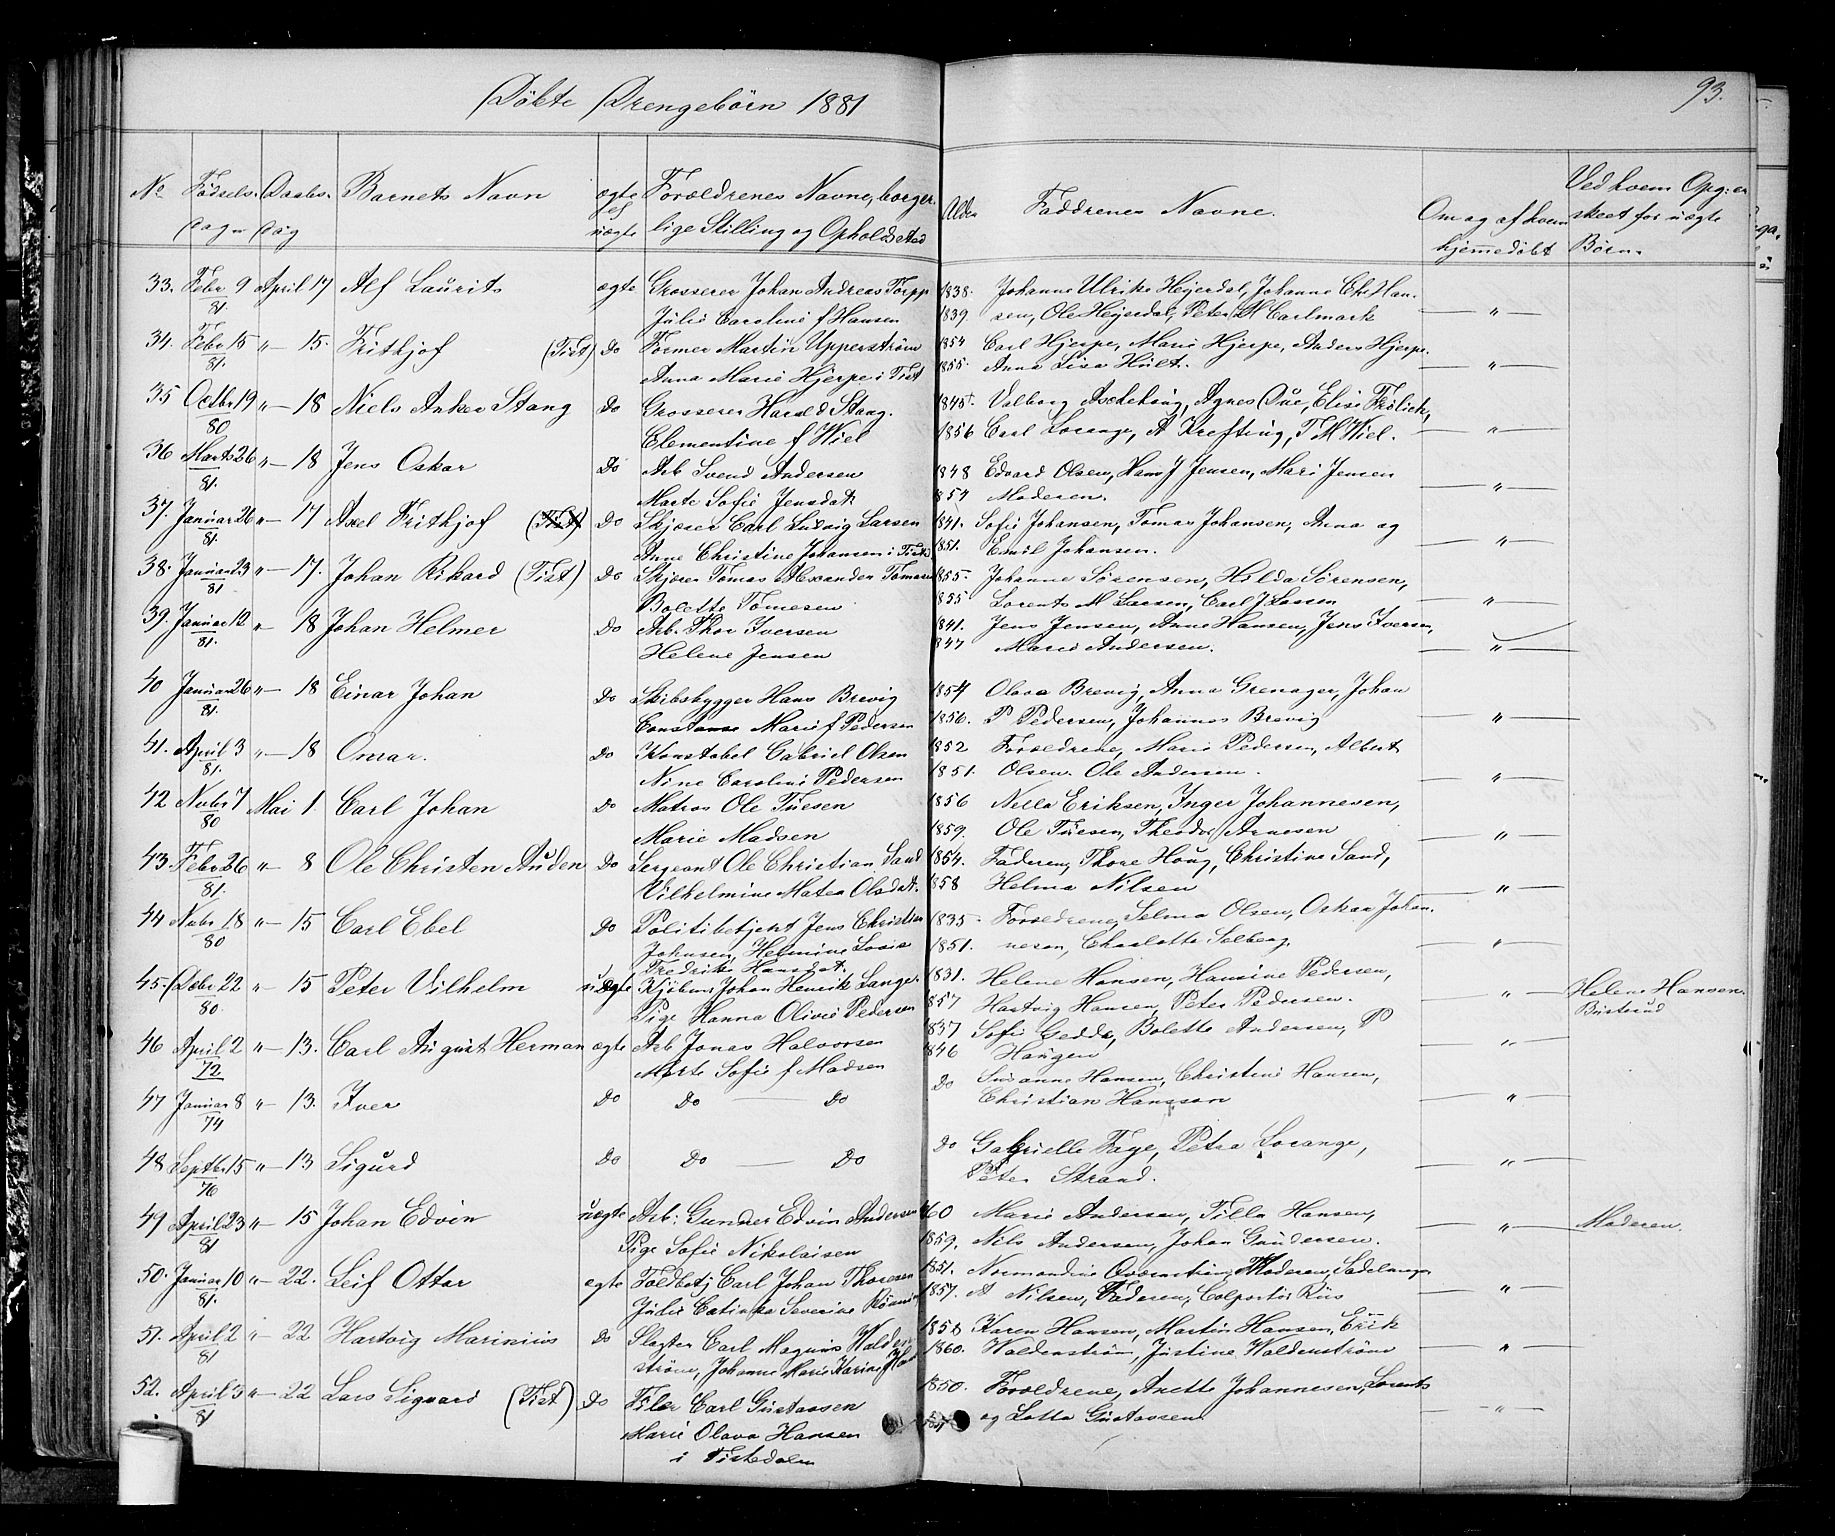 93.
Døbte Drengebørn 1881
No Fødsels- Daabs- Barnets Navn ægte Forældrenes Navne, borger- Alder Faddrenes Navne. Om og af hvem Ved hvem Opg: er
Dag Dag el uægte lige Stilling og Opholdsted hjemmedøbt skeet for uægte Børn.
33. Febr 9 April 17 Alf Laurits ægte Grosserer Johan Andreas Torpp 1838. Johanne Ulrike Heyerdal, Johanne Han- — „ —
81. Julie Caroline f Hansen 1839. sen, Ole Heyerdal, Peter M Carlmark
34. Febr 15 „ — 15. Frithjof (Tist) Do Former Martin Upperstrøm 1854 Carl Hjerpe, Marie Hjerpe, Anders Hjerpe. — „ —
81. Anna Marie Hjerpe i Tist 1855. Anna Lisa Hult.
35 Octbr 19 „ — 18 Niels Anker Stang Do Grosserer Harald Stang. 1845. Valborg Aschehoug, Agnes Due, Elise Frølich, — „ —
80 Clementine f Wiel 1856 Carl Lorange, A Krefting, T M Wiel.
36 Marts 26 „ — 18 Jens Oskar Do Arb Svend Andersen 1848 Edvard Olsen, Hans J Jensen, Mari Jensen — „ —
81. Marte Sofie Jensdat 1854 Moderen.
37. Januar 26 „ — 17 Axel Frithjof (Tist) Do Skjærer Carl Ludvig Larsen 1841. Sofie Johansen, Tomas Johansen, Anna og — „ —
81. Anne Christine Johansen i Tist 1851. Emil Johansen.
38. Januar 23 „ — 17. Johan Rikard (Tist) Do Skjærer Tomas Alexander Tomasen 1855. Johanne Sørensen, Hilda Sørensen, — „ —
81 Bolette Tomesen 1855 Lorents M Larsen, Carl J Larsen
39. Januar 12 „ — 18 Johan Helmer Do Arb. Thor Iversen 1841. Jens Jensen, Anne Hansen, Jens Iversen, — „ —
81. Helene Jensen 1847 Marie Andersen.
40 Januar 26 „ — 18 Einar Johan Do Skibsbygger Hans Brevig 1854 Olava Brevig, Anna Grenager, Johan — „ —
81. Constanse Marie f Pedersen 1856. P Pedersen, Johannes Brevig
41. April 3 „ — 18 Omar. Do Konstabel Gabriel Olsen 1852 Forældrene, Marie Pedersen, Albert — „ —
81. Nine Caroline Pedersen 1851. Olsen. Ole Andersen.
42 Nvbr 7 Mai 1. Carl Johan Do Matros Ole Tuesen 1856 Nella Eriksen, Inger Johannesen, — „ —
80 Marie Madsen 1859. Ole Tuesen, Theodor Arnesen
43. Febr 26 „ — 8 Ole Christen Auden Do Sergeant Ole Christian Sand 1854. Faderen, Thore Houg, Christine Sand, — „ —
81. Vilhelmine Matea Olsdat. 1858 Helma Nilsen
44 Nvbr 18 „ — 15 Carl Ebel Do Politibetjent Jens Christian 1835 Forældrene, Selma Olsen, Oskar Johan- — „ —
80 Johnsen, Helmine Lovise 1851. nesen, Charlotte Solberg
Fredrike Hansdat.
45. Dcbr 22 „ — 15 Peter Vilhelm uægte Kjøbm: Johan Henrik Lange. 1831. Helene Hansen, Hansine Pedersen, — „ — Helene Hansen.
80. Pige Hanna Olivie Pedersen 1857 Hartvig Hansen, Peter Pedersen. Busterud
46 April 2 „ — 13. Carl August Herman ægte Arb Jonas Halvorsen 1837 Sofie Gedde, Bolette Andersen, P — „ —
72 Marte Sofie f Madsen 1846 Haugen
47 Januar 8 „ — 13. Iver Do Do — Do Do Susanne Hansen, Christine Hansen, — „ —
74 Christian Hanssen
48 Septbr 15 „ — 13 Sigurd Do Do — Do Do Gabrielle Faye, Petra Lorange, — „ —
76 Peter Strand.
49 April 23 „ — 15 Johan Edvin uægte Arb: Gunder Edvin Andersen 60 Marie Andersen, Tilla Hansen, — „ — Moderen.
81 Pige Sofie Nikolaisen 1859. Nils Andersen, Johan Gundersen.
50. Januar 10 „ — 22. Leif Ottar ægte Toldbetj Carl Johan Thoresen 1851. Normandine Moderen, — „ —
81. Julie Catinka Severine 1857. A Nilsen, Faderen, Colportør Riis
51. April 2 „ — 22 Hartvig Marinius Do Slagter Carl Magnus Walden- 1858 Karen Hansen, Martin Hansen, Erik — „ —
81 strøm, Johanne Marie Karine f 1860. Waldenstrøm, Justine Waldenstrøm
52. April 3 „ — 22 Lars Sigvard (Tist) Do Filer Carl Gustavsen 1850. Forældrene, Anette Johannesen, Lorents — „ —
81 Marie Olava Hansen og Lotta Gustavsen
i Tistedalen